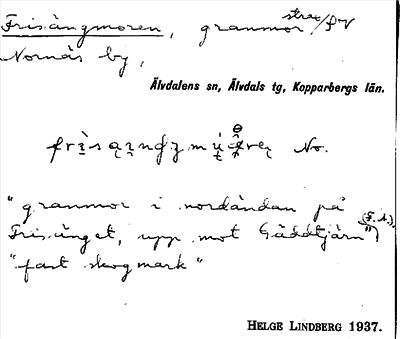 Frisängmoren, granmor strax fV
Nornäs by,
Älvdalens sn, Älvdals tg, Kopparbergs län.
No.
"granmor i nordändan på
Frisänget, upp mot Gäddtjärn" (F.A.),
"fast skogmark"
HELGE LINDBERG 1937.